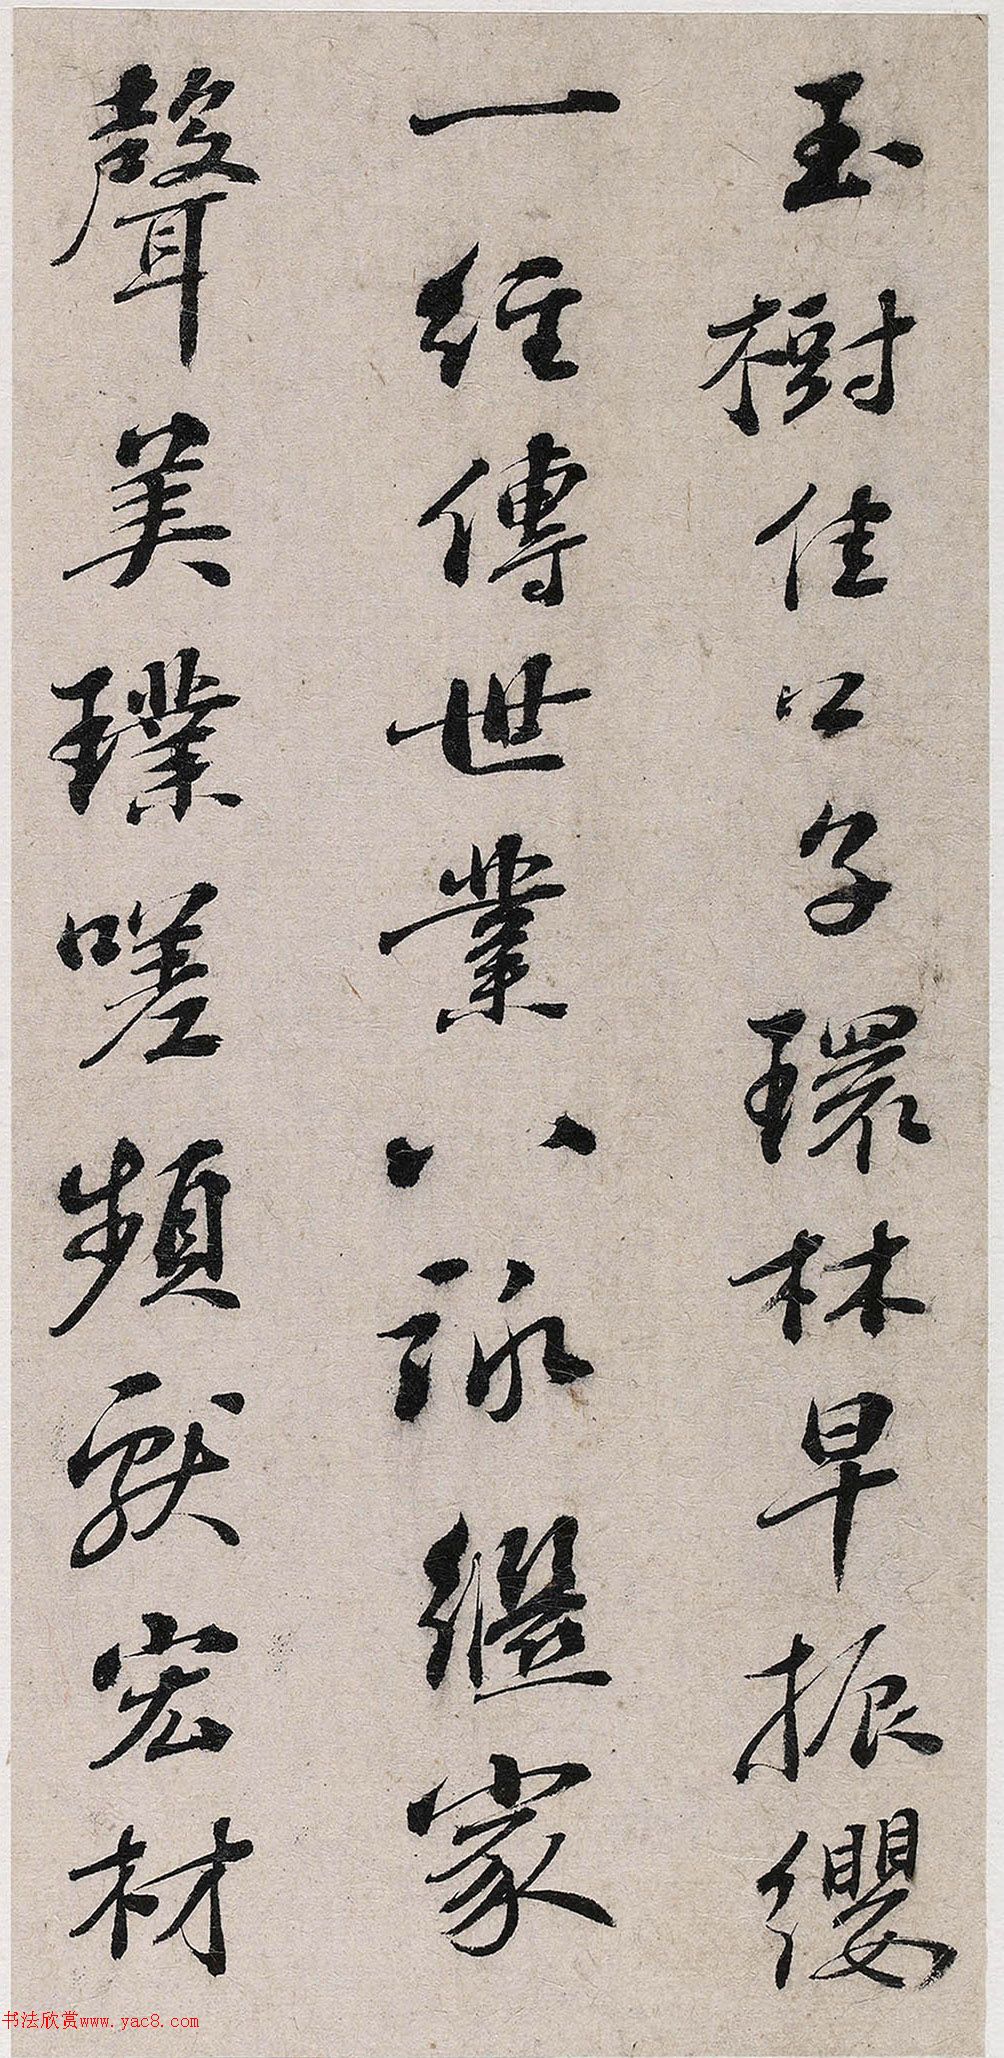 玉樹佳公子環林早振纓
一經傳世業八詠繼家
聲美璞嗟頻獻宏材
书法欣赏www.yac8.com